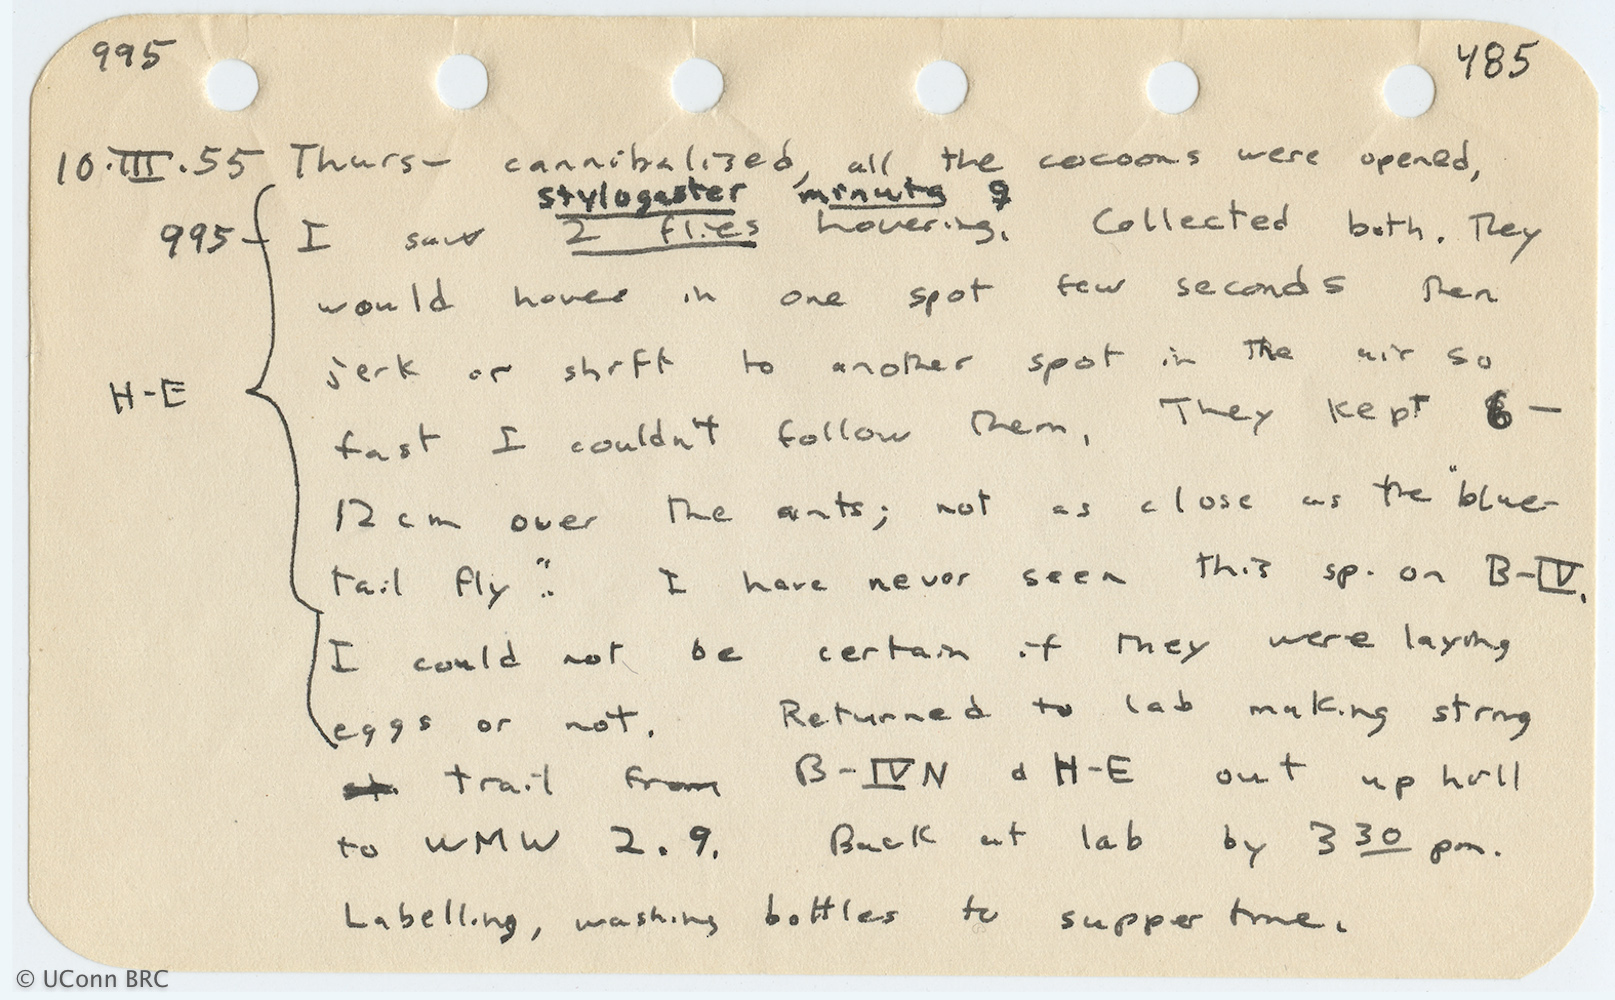 995 485
10.III.55 Thurs— cannibalized, all the cocoons were opened,
stylogaster minuta ♀
995 — I saw 2 flies hovering. Collected both. They
would hover in one spot few seconds then
jerk or shift to another spot in the air so
H-E
fast I couldn't follow them. They kept 6-
12 cm over the ants; not as close as the "blue-
tail fly". I have never seen this sp. on B-IV.
I could not be certain if they were laying
eggs or not. Returned to lab making string
trail from B-IV N & H-E out up hill
to WMW 2.9. Back at lab by 3 30 pm.
Labelling, washing bottles to supper time.
© UConn BRC